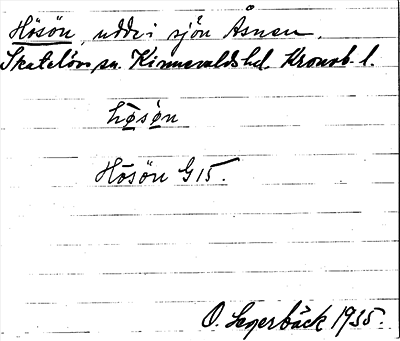 Hösön, udde i sjön Åsnen.
Skatelövs sn. Kinnevalds hd. Kronob. l.
hø̀sø̀n
Hösön G 15.
O. Segerbäck 1935.